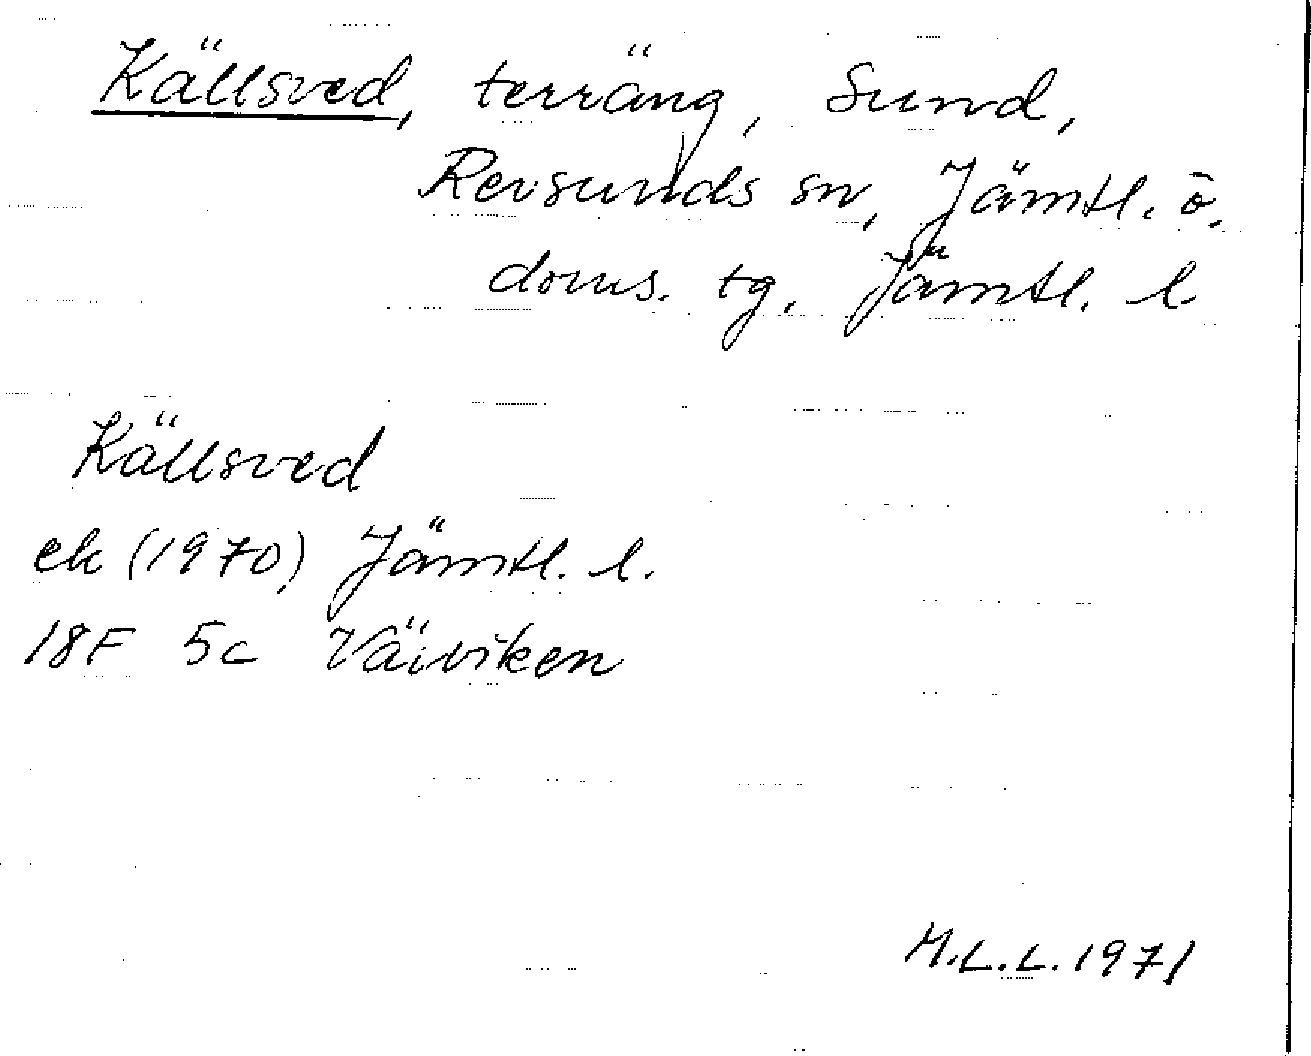 Källsved, terräng, Sund,
Revsunds sn, Jämtl. ö.
doms. tg, Jämtl. l
Källsved
ek (1970) Jämtl. l.
18F 5c Väiviken
M.L.L. 1971